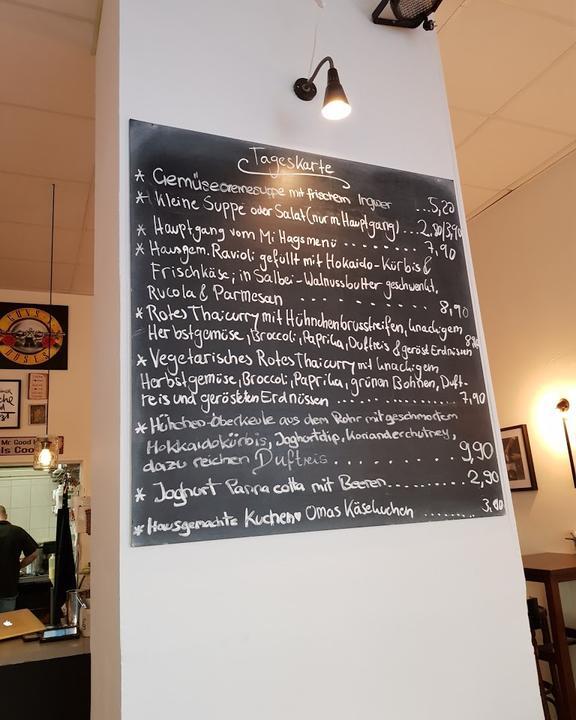 Tageskarte
* Gemüsecremesuppe mit frischem Ingwer ...5,20
* Kleine Suppe oder Salat (nur m. Hauptgang) ...2.80/3,90
* Hauptgang vom Mittagsmenü ........ 7,90
* Hausgem. Ravioli gefüllt mit Hokaido-Kürbis &
Frischkäse; in Salbei-Walnussbutter geschwenkt,
Rucola & Parmesan ........ 8,90
* Rotes Thaicurry mit Hühnchenbruststreifen, knackigem
Herbstgemüse, Broccoli, Paprika, Duftreis & geröst Erdnüssen
* Vegetarisches Rotes Thaicurry mit knackigem
Herbstgemüse, Broccoli, Paprika, grünen Bohnen, Duft-
reis und gerösteten Erdnüssen ........ 7,90
* Hühnchen-Oberkeule aus dem Rohr mit geschmortem
Hokkaidokürbis, Joghurtdip, Korianderchutney,
dazu reichen Duftreis ........ 9,90
* Joghurt Panna cotta mit Beeren........ 2,90
* Hausgemachte Kuchen♥ Omas Käsekuchen ........ 3.90
GUNS N
ROSES